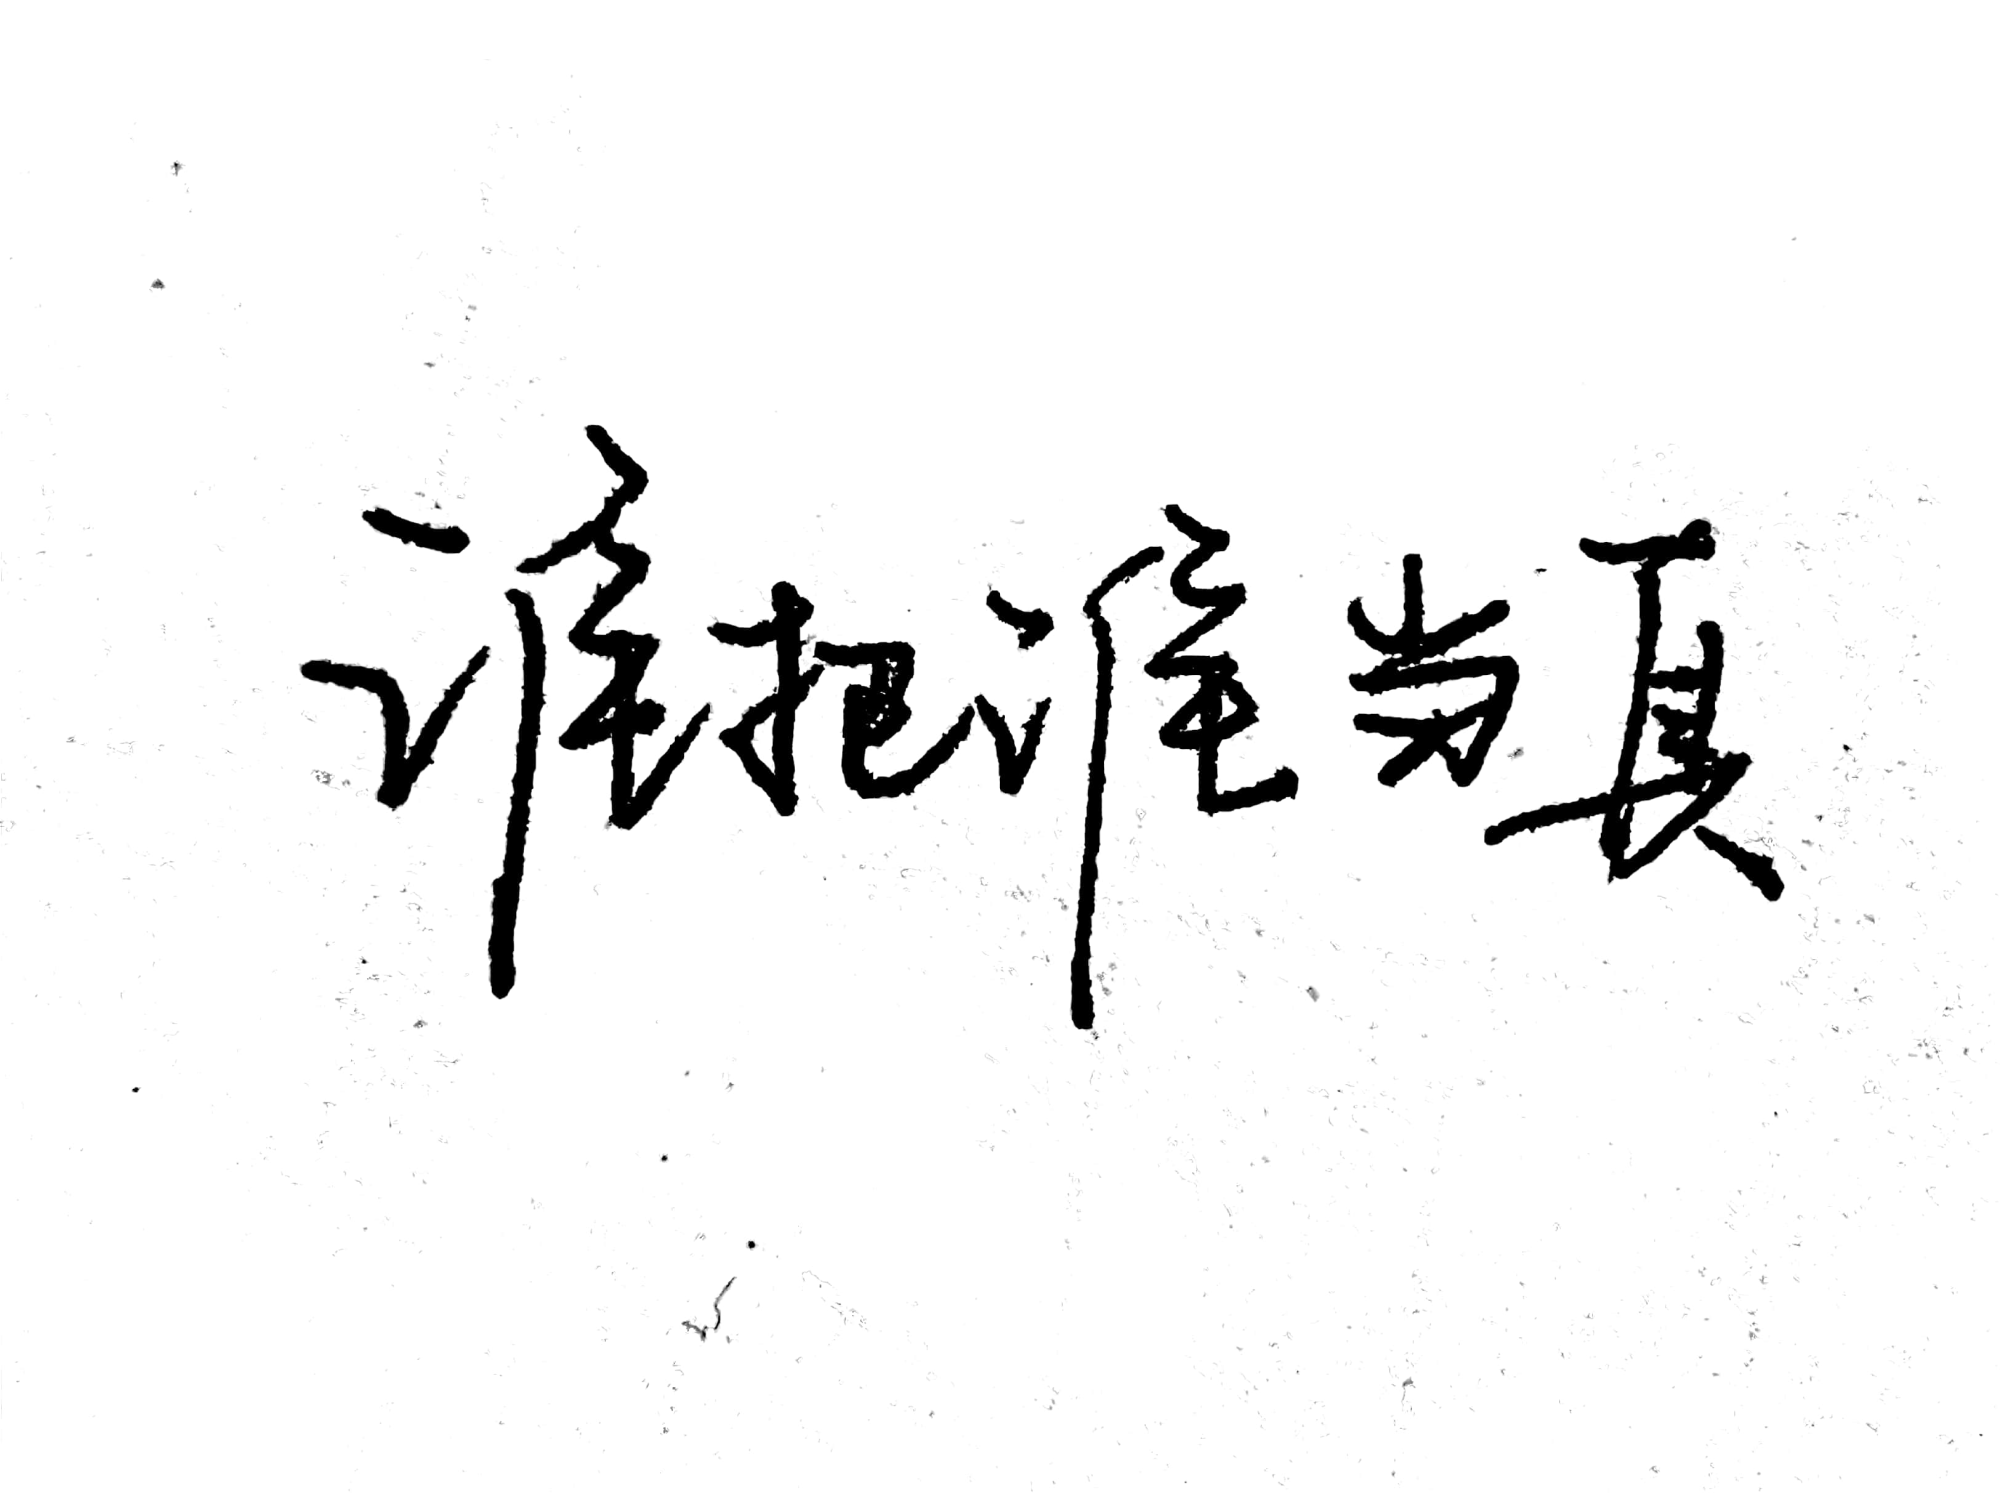 谁把谁当真